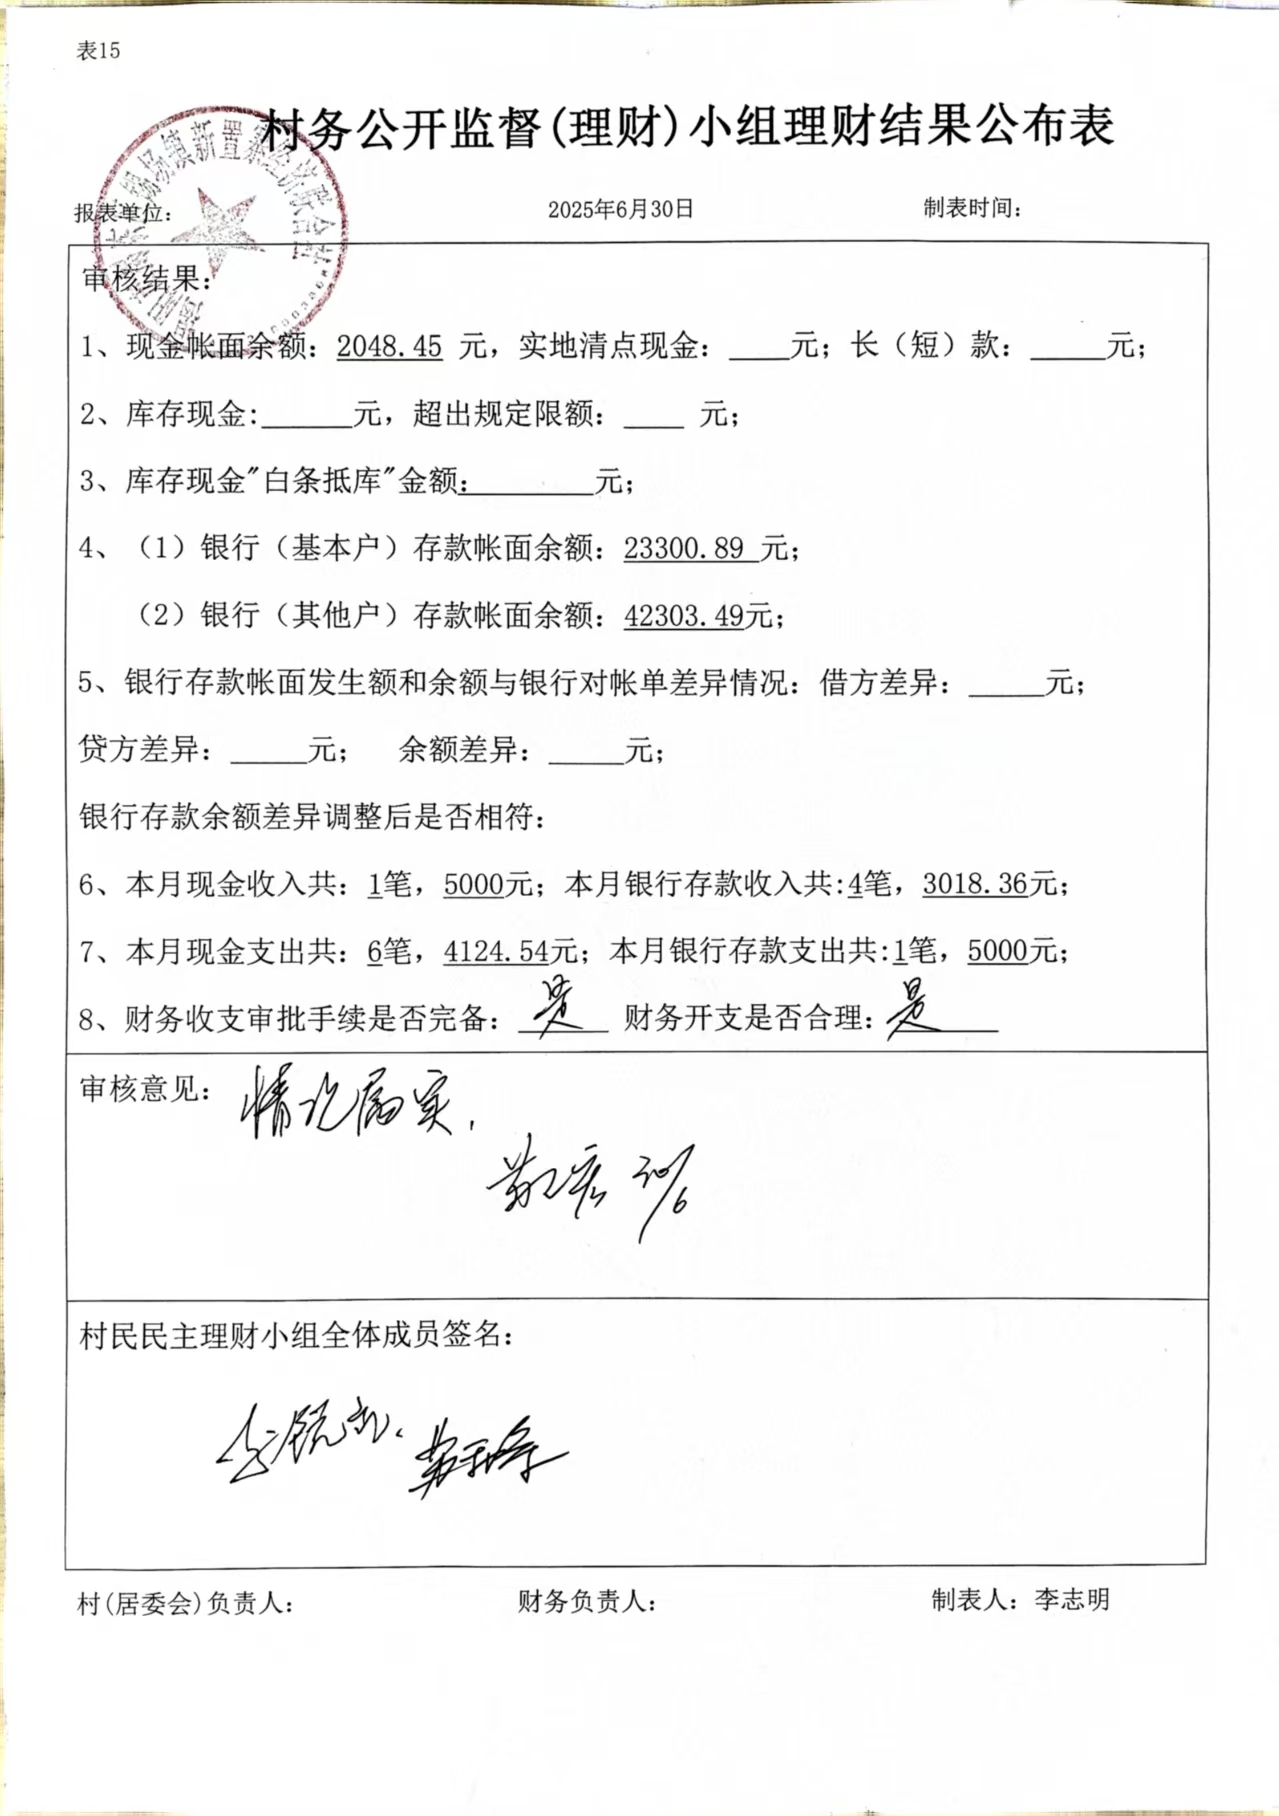 表15
村务公开监督(理财)小组理财结果公布表
报表单位：
2025年6月30日
制表时间：
镇新置寨经济联合社
审核结果：
1、现金帐面余额：2048.45 元，实地清点现金：____元；长（短）款：_____元；
2、库存现金:______元，超出规定限额：____ 元；
3、库存现金"白条抵库"金额：________元；
4、（1）银行（基本户）存款帐面余额：23300.89 元；
（2）银行（其他户）存款帐面余额：42303.49元；
5、银行存款帐面发生额和余额与银行对帐单差异情况：借方差异：_____元；
贷方差异：_____元； 余额差异：_____元；
银行存款余额差异调整后是否相符：
6、本月现金收入共：1笔，5000元；本月银行存款收入共:4笔，3018.36元；
7、本月现金支出共：6笔，4124.54元；本月银行存款支出共:1笔，5000元；
8、财务收支审批手续是否完备：是 财务开支是否合理：是
审核意见：情况属实，
30/6
村民民主理财小组全体成员签名：
村(居委会)负责人：
财务负责人：
制表人：李志明